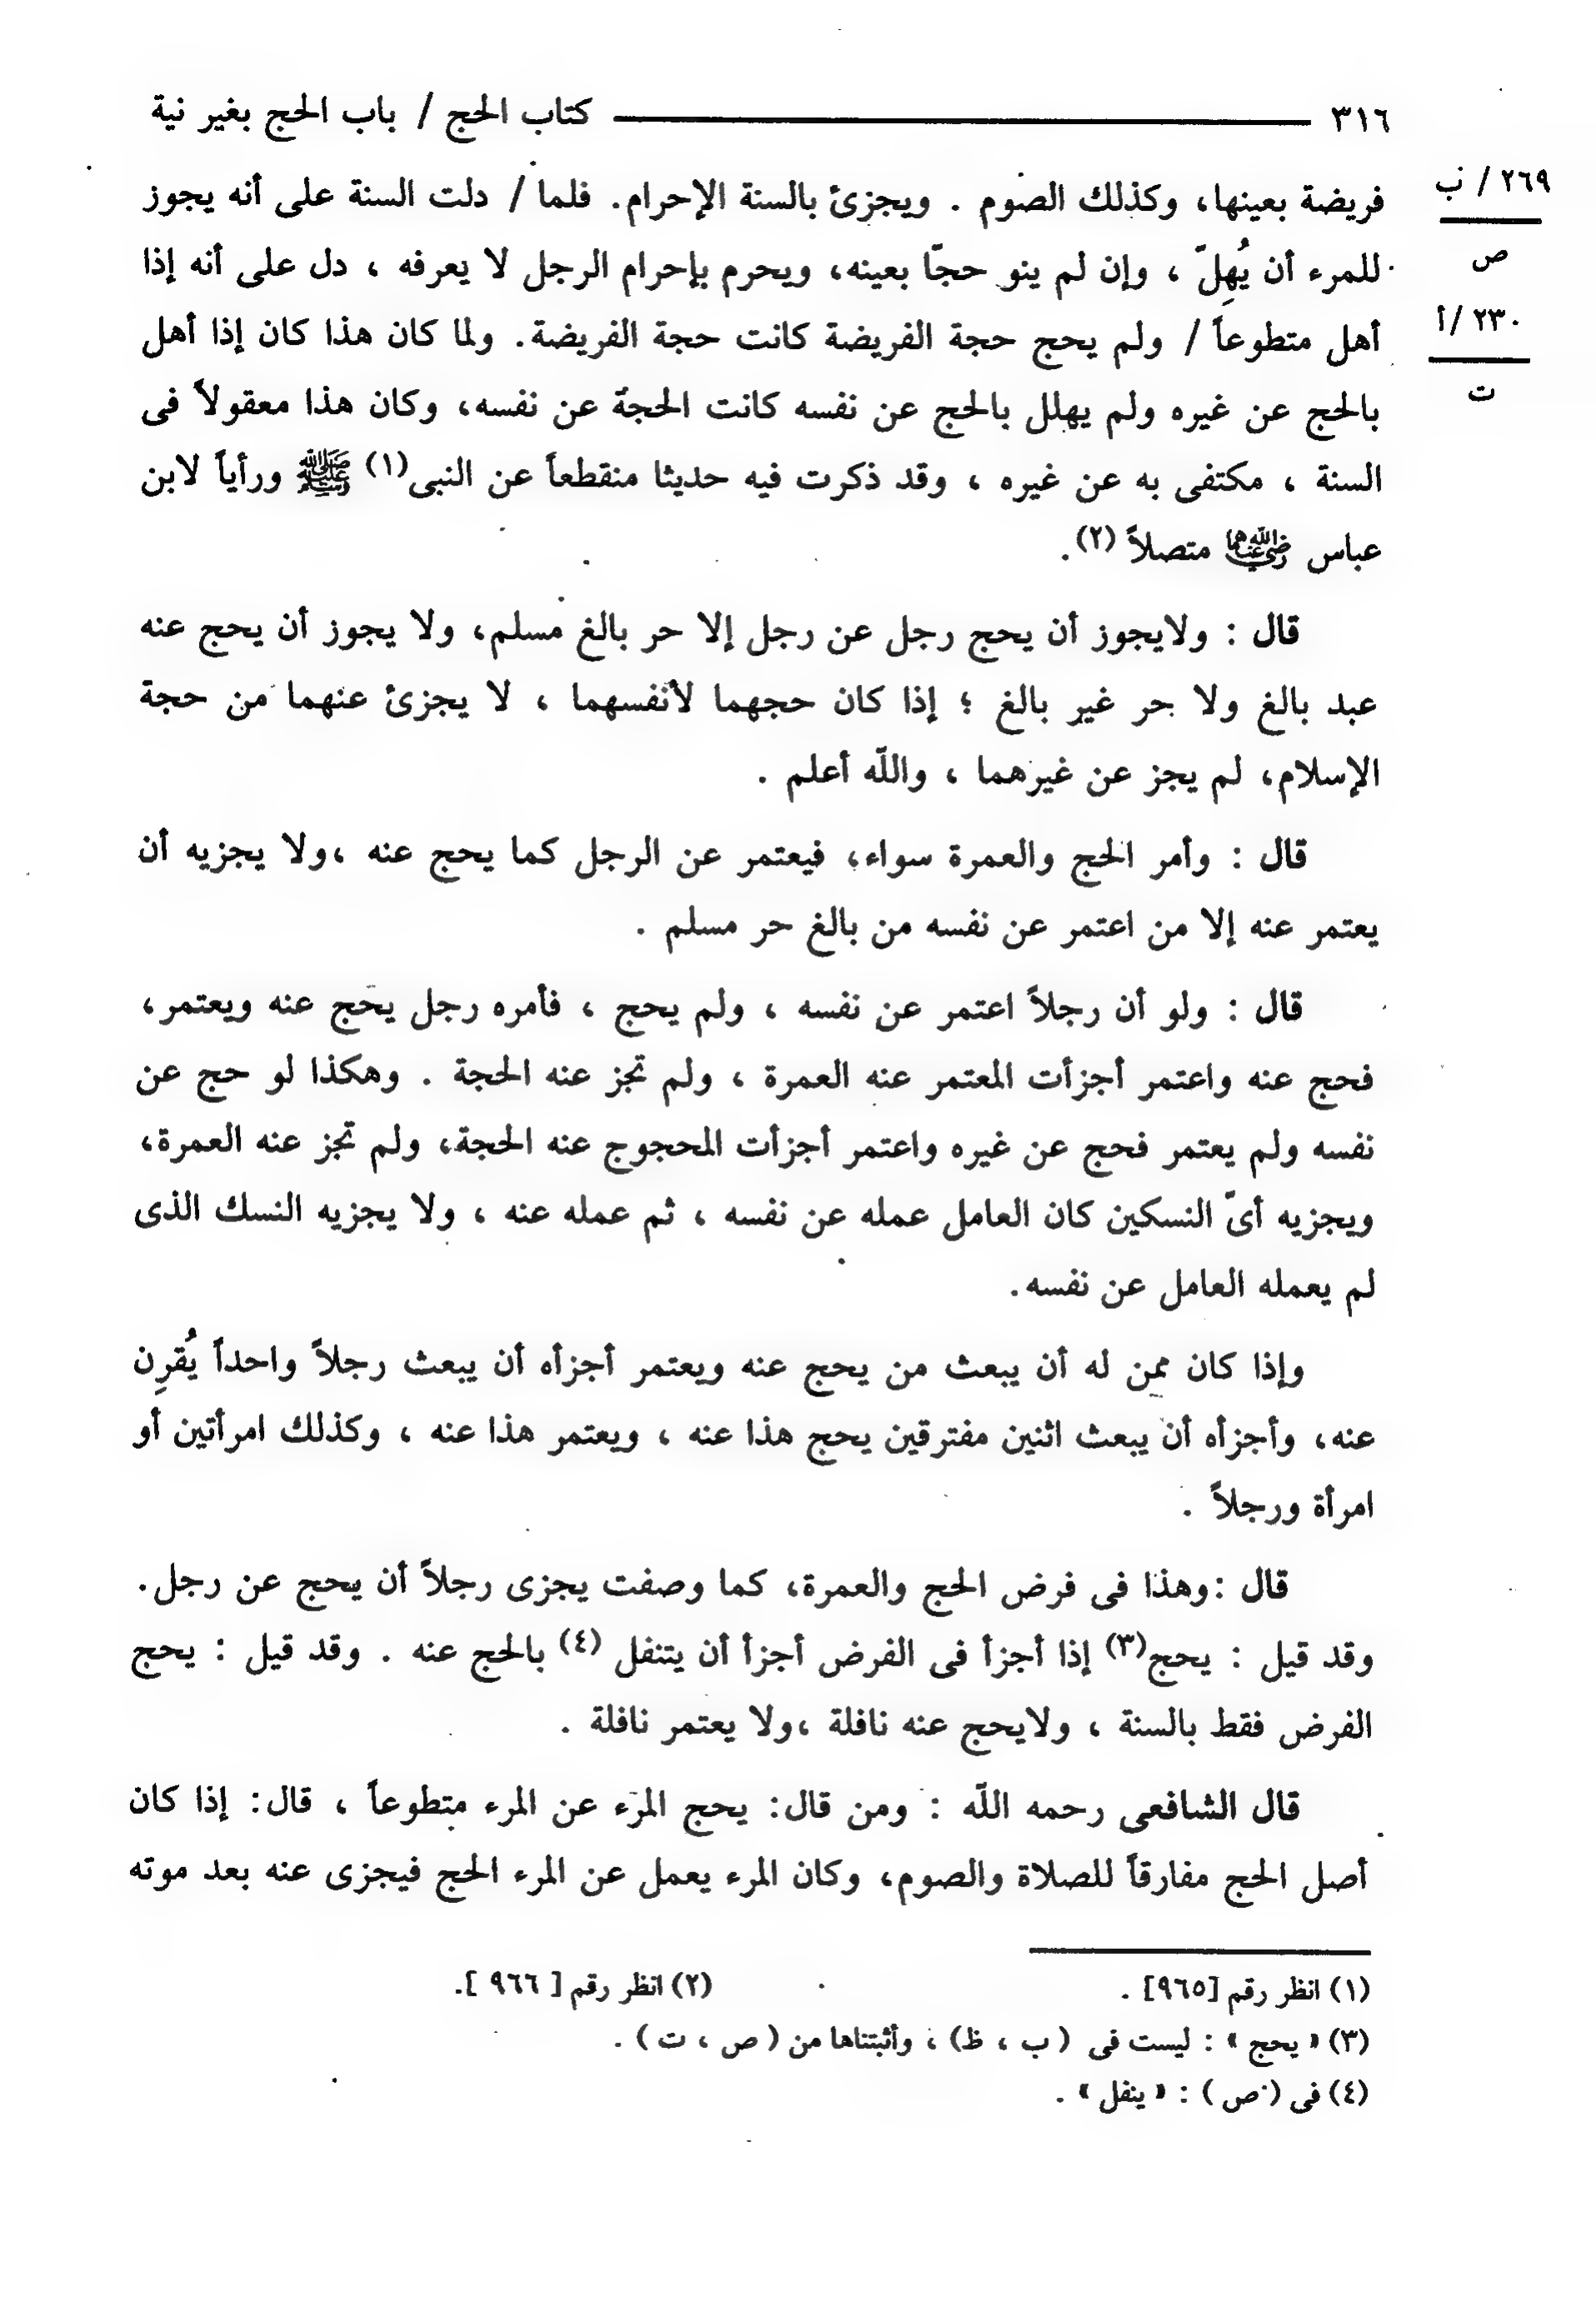 ٣١٦ كتاب الحج / باب الحج بغير نية
فريضة بعينها، وكذلك الصوم . ويجزئ بالسنة الإحرام. فلما / دلت السنة على أنه يجوز
٢٦٩ / ب
ص
للمرء أن يُهِلّ ، وإن لم ينو حجّا بعينه، ويحرم بإحرام الرجل لا يعرفه ، دل على أنه إذا
٢٣٠ /أ
ت
أهل متطوعاً / ولم يحج حجة الفريضة كانت حجة الفريضة. ولما كان هذا كان إذا أهل
بالحج عن غيره ولم يهلل بالحج عن نفسه كانت الحجة عن نفسه، وكان هذا معقولاً فى
السنة ، مكتفى به عن غيره ، وقد ذكرت فيه حديثا منقطعاً عن النبى(١) ﷺ ورأياً لابن
عباس رضي الله عنهما متصلاً (٢).
قال : ولايجوز أن يحج رجل عن رجل إلا حر بالغ مسلم، ولا يجوز أن يحج عنه
عبد بالغ ولا حر غير بالغ ؛ إذا كان حجهما لأنفسهما ، لا يجزئ عنهما من حجة
الإسلام، لم يجز عن غيرهما ، واللّه أعلم .
قال : وأمر الحج والعمرة سواء، فيعتمر عن الرجل كما يحج عنه ،ولا يجزيه أن
يعتمر عنه إلا من اعتمر عن نفسه من بالغ حر مسلم .
قال : ولو أن رجلاً اعتمر عن نفسه ، ولم يحج ، فأمره رجل يحج عنه ويعتمر،
فحج عنه واعتمر أجزأت المعتمر عنه العمرة ، ولم تجز عنه الحجة . وهكذا لو حج عن
نفسه ولم يعتمر فحج عن غيره واعتمر أجزأت المحجوج عنه الحجة، ولم تجز عنه العمرة،
ويجزيه أىّ النسكين كان العامل عمله عن نفسه ، ثم عمله عنه ، ولا يجزيه النسك الذى
لم يعمله العامل عن نفسه.
وإذا كان ممن له أن يبعث من يحج عنه ويعتمر أجزأه أن يبعث رجلاً واحداً يُقرِن
عنه، وأجزأه أن يبعث اثنين مفترقين يحج هذا عنه ، ويعتمر هذا عنه ، وكذلك امرأتين أو
امرأة ورجلاً .
قال :وهذا فى فرض الحج والعمرة، كما وصفت يجزى رجلاً أن يحج عن رجل.
وقد قيل : يحج(٣) إذا أجزأ فى الفرض أجزأ أن يتنفل (٤) بالحج عنه . وقد قيل : يحج
الفرض فقط بالسنة ، ولايحج عنه نافلة ،ولا يعتمر نافلة .
قال الشافعى رحمه اللّه : ومن قال: يحج المرء عن المرء متطوعاً ، قال: إذا كان
أصل الحج مفارقاً للصلاة والصوم، وكان المرء يعمل عن المرء الحج فيجزى عنه بعد موته
(١) انظر رقم [٩٦٥] . (٢) انظر رقم [ ٩٦٦ ].
(٣) « يحج » : ليست فى ( ب ، ظ) ، وأثبتناها من ( ص ، ت ) .
(٤) فى ( ص ) : « ينفل » .